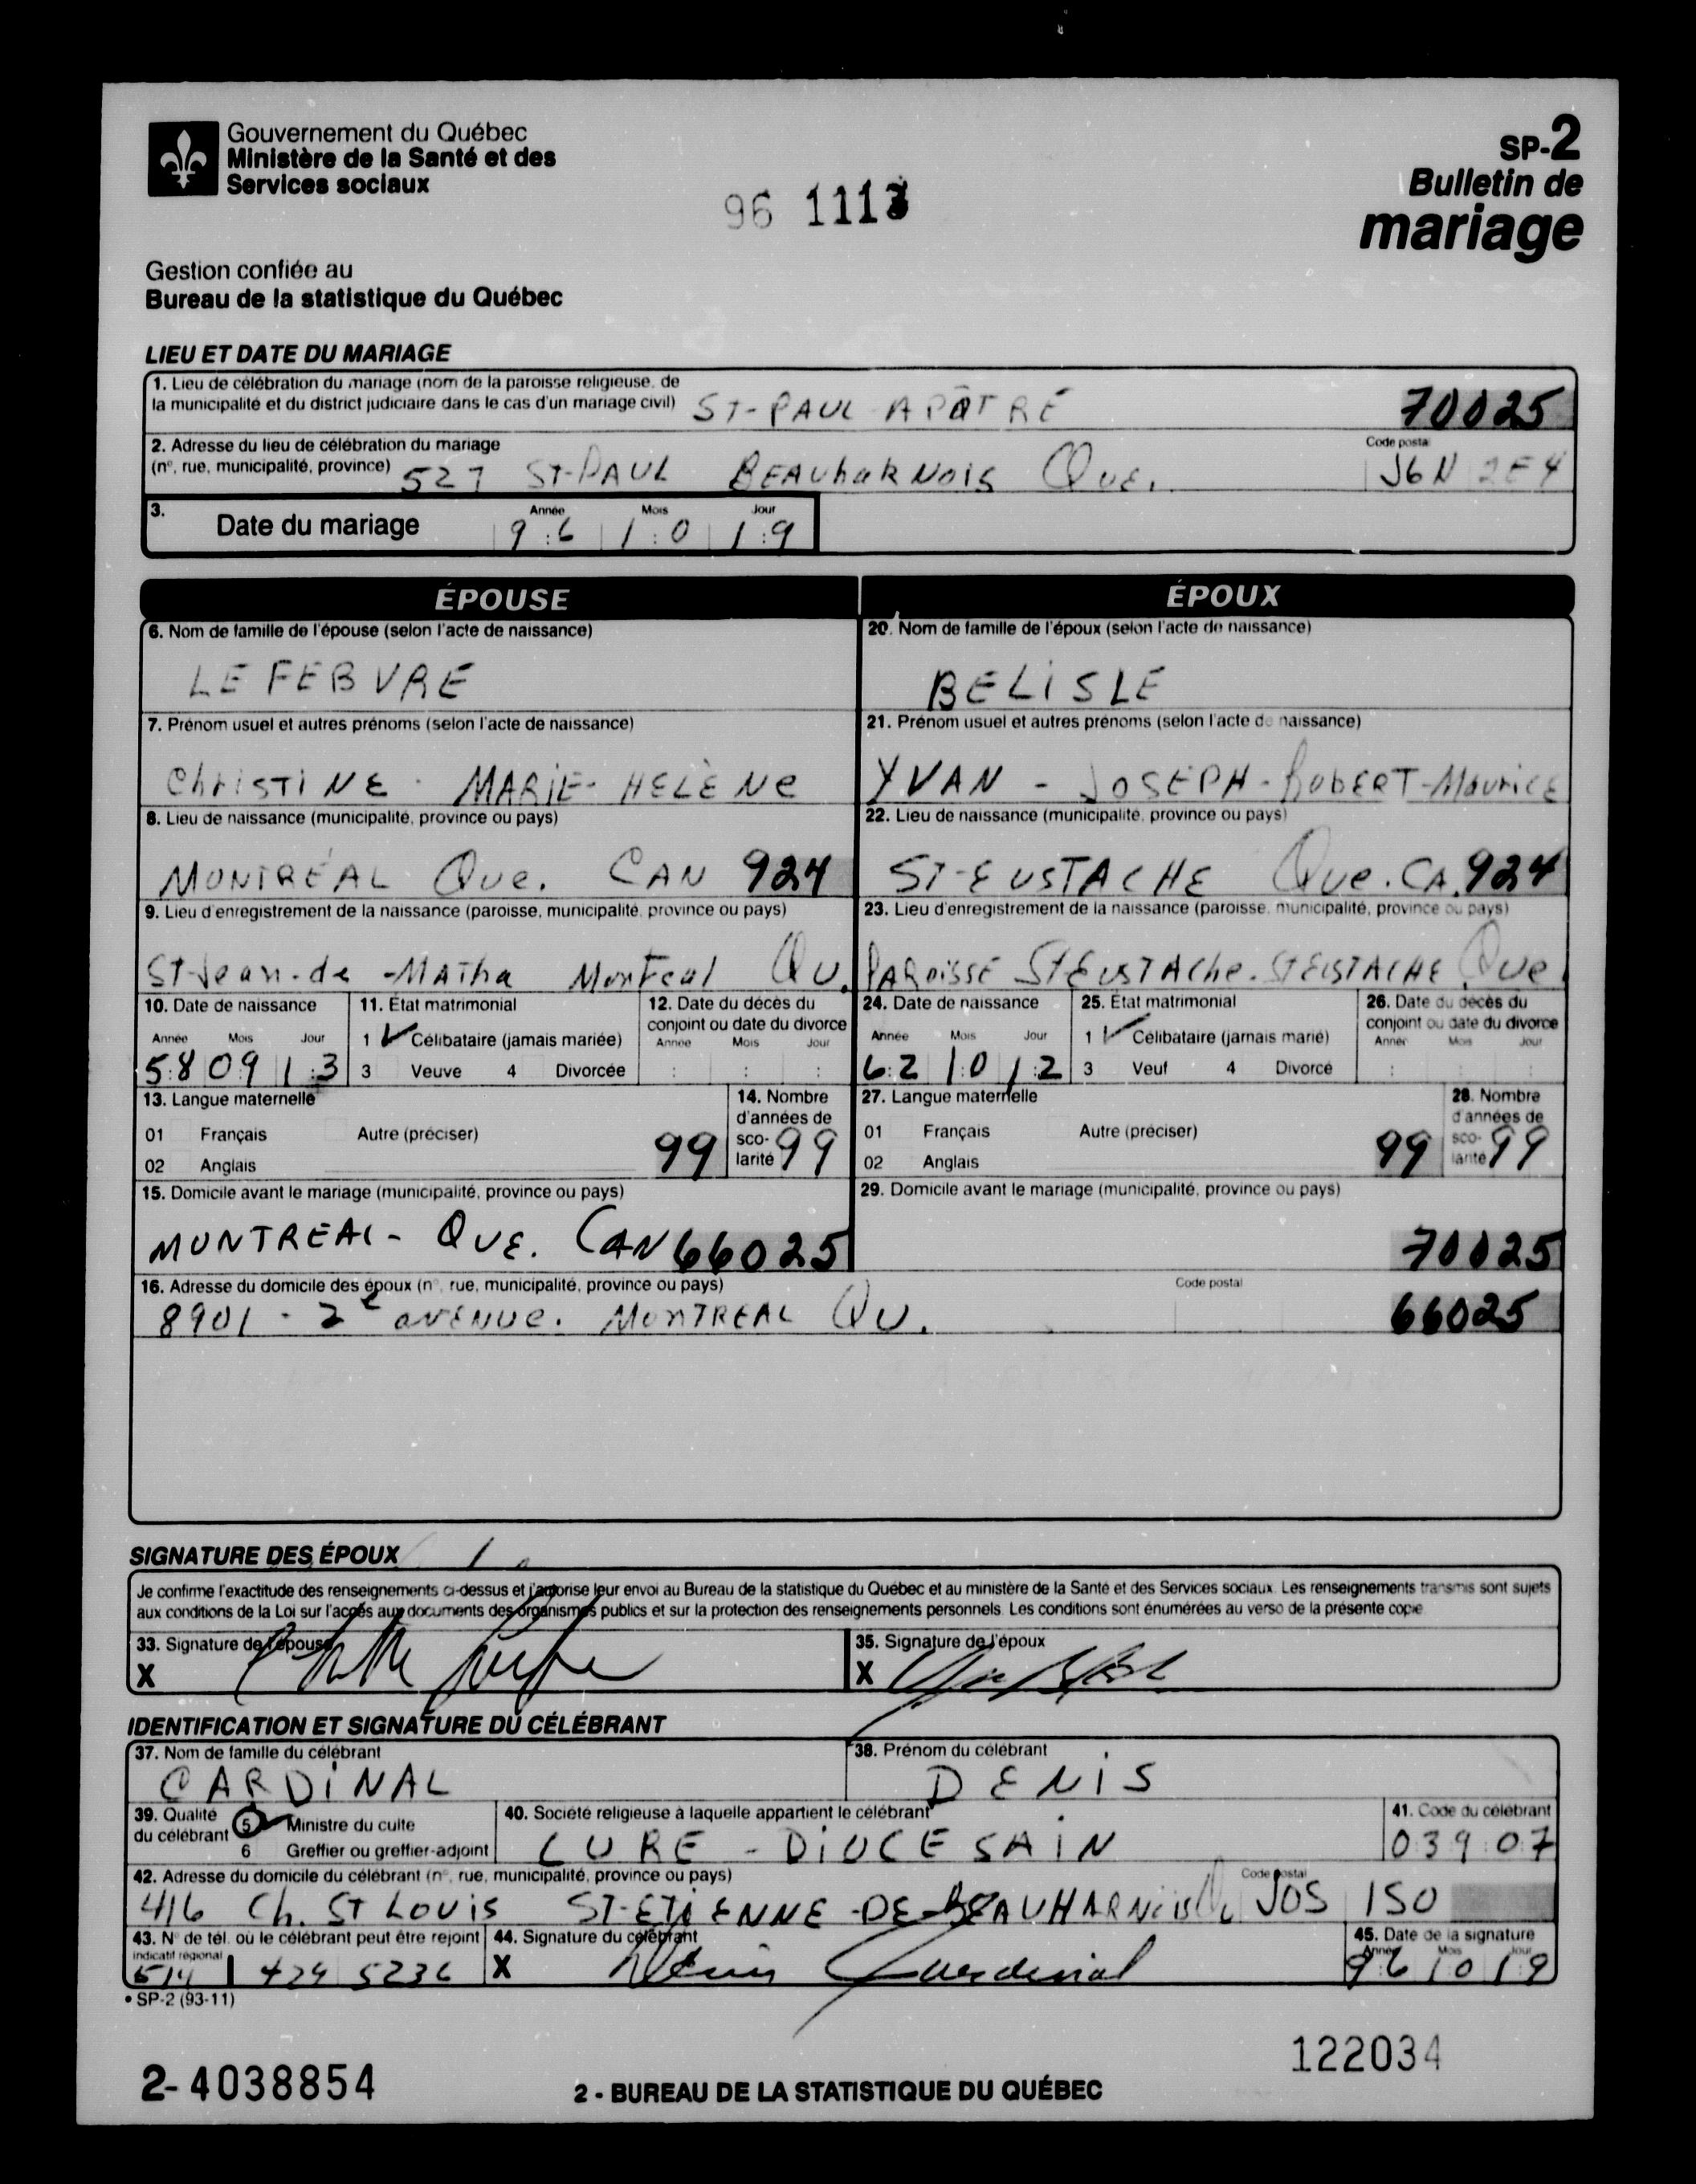 Gouvernement du Québec
Ministère de la Santé et des
Services sociaux
SP-2
Bulletin de
mariage
96 1113
Gestion confiée au
Bureau de la statistique du Québec
LIEU ET DATE DU MARIAGE
1. Lieu de célébration du mariage (nom de la paroisse religieuse, de
la municipalité et du district judiciaire dans le cas d'un mariage civil) ST-PAUL APÂTRE 70025
2. Adresse du lieu de célébration du mariage
(nº, rue, municipalité, province) 527 ST-PAUL BEAUhaRNOIS QUE. Code postal J6N 2E4
3. Date du mariage Année Mois Jour 96 10 19
ÉPOUSE ÉPOUX
6. Nom de famille de l'épouse (selon l'acte de naissance) 20. Nom de famille de l'époux (selon l'acte de naissance)
LEFEBVRE BELISLE
7. Prénom usuel et autres prénoms (selon l'acte de naissance) 21. Prénom usuel et autres prénoms (selon l'acte de naissance)
ChRISTINE MARIE-HELÈNe YVAN - JOSEPH-RobERT-Maurice
8. Lieu de naissance (municipalité, province ou pays) 22. Lieu de naissance (municipalité, province ou pays)
MONTRÉAL Que. CAN 924 ST-EUSTACHE Que. CA. 924
9. Lieu d'enregistrement de la naissance (paroisse, municipalité, province ou pays) 23. Lieu d'enregistrement de la naissance (paroisse, municipalité, province ou pays)
St-Jean-de-Matha Montreal Qu. PAROISSE ST EUSTAChe. ST EUSTACHE Que.
10. Date de naissance 11. État matrimonial 12. Date du décès du conjoint ou date du divorce 24. Date de naissance 25. État matrimonial 26. Date du décès du conjoint ou date du divorce
Année Mois Jour 1 ✓ Célibataire (jamais mariée) Année Mois Jour Année Mois Jour 1 ✓ Célibataire (jamais marié) Année Mois Jour
58 09 13 3 Veuve 4 Divorcée 62 10 12 3 Veuf 4 Divorcé
13. Langue maternelle 14. Nombre d'années de scolarité 27. Langue maternelle 28. Nombre d'années de scolarité
01 Français Autre (préciser) 01 Français Autre (préciser)
02 Anglais 99 99 02 Anglais 99 99
15. Domicile avant le mariage (municipalité, province ou pays) 29. Domicile avant le mariage (municipalité, province ou pays)
MONTREAL - QUE. CAN 66025 70025
16. Adresse du domicile des époux (nº, rue, municipalité, province ou pays) Code postal
8901 - 2e avENUe. MONTREAL QU. 66025
SIGNATURE DES ÉPOUX
Je confirme l'exactitude des renseignements ci-dessus et j'autorise leur envoi au Bureau de la statistique du Québec et au ministère de la Santé et des Services sociaux. Les renseignements transmis sont sujets
aux conditions de la Loi sur l'accès aux documents des organismes publics et sur la protection des renseignements personnels. Les conditions sont énumérées au verso de la présente copie.
33. Signature de l'épouse 35. Signature de l'époux
X X
IDENTIFICATION ET SIGNATURE DU CÉLÉBRANT
37. Nom de famille du célébrant 38. Prénom du célébrant
CARDINAL DENIS
39. Qualité du célébrant 5 Ministre du culte 6 Greffier ou greffier-adjoint
40. Société religieuse à laquelle appartient le célébrant 41. Code du célébrant
CURE - DIOCESAIN 03907
42. Adresse du domicile du célébrant (nº, rue, municipalité, province ou pays) Code postal
416 Ch. ST LOUIS ST-ETIENNE-DE-BEAUHARNOIS JOS ISO
43. Nº de tél. où le célébrant peut être rejoint 44. Signature du célébrant 45. Date de la signature
Indicatif régional Année Mois Jour
514 429 5236 X Denis Cardinal 96 10 19
• SP-2 (93-11)
122034
2-4038854 2 - BUREAU DE LA STATISTIQUE DU QUÉBEC